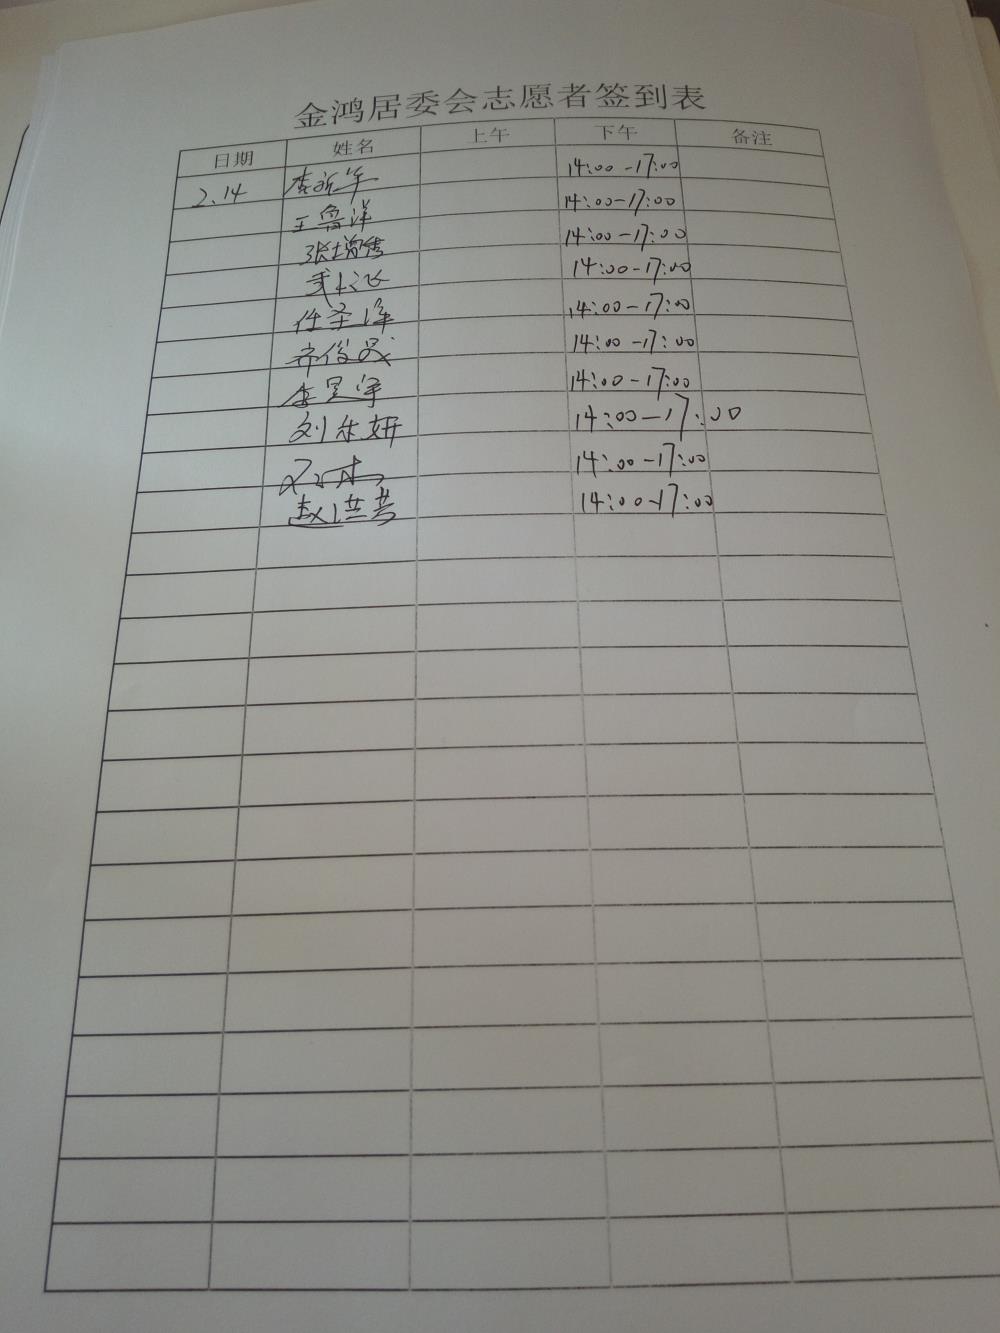 金鸿居委会志愿者签到表
日期 姓名 上午 下午 备注
2.14 李新华 14:00-17:00
王鲁洋 14:00-17:00
张增信 14:00-17:00
14:00-17:00
任圣洋 14:00-17:00
齐俊晟 14:00-17:00
李昊宇 14:00-17:00
刘乐妍 14:00-17:00
14:00-17:00
赵洪芸 14:00-17:00